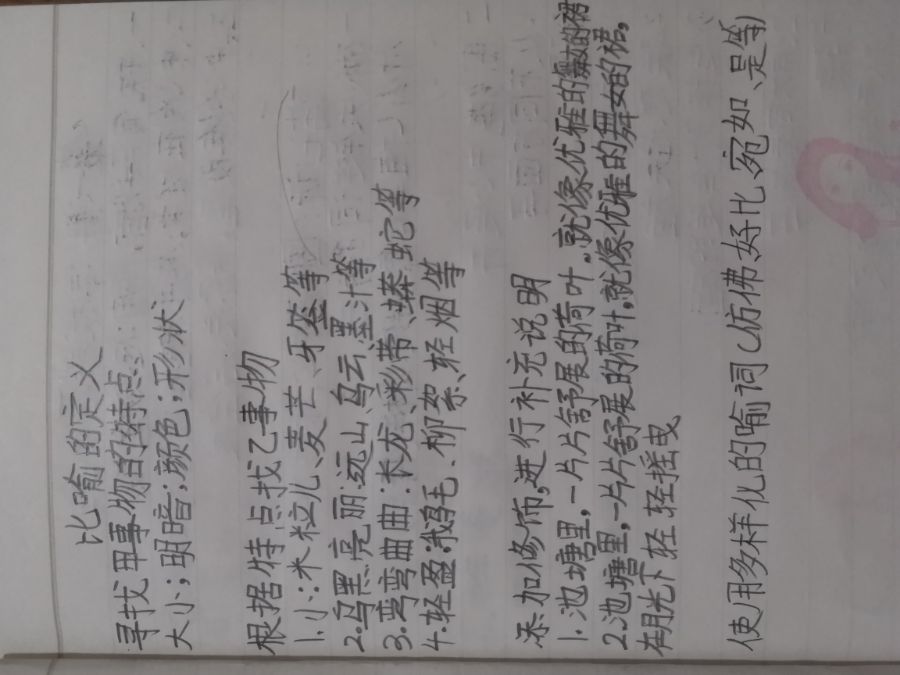 比喻的定义
寻找甲事物的特点
大小;明暗;颜色;形状
根据特点找乙事物
1.小:米粒儿、麦芒、牙签等
2.乌黑亮丽:远山、乌云、墨汁等
3.弯弯曲曲:长龙、彩带、蟒蛇等
4.轻盈:鹅毛、柳絮、轻烟等
添加修饰,进行补充说明
1.池塘里,一片片舒展的荷叶,就像优雅的舞女的裙
2.池塘里,一片片舒展的荷叶,就像优雅的舞女的裙,
在月光下轻轻摇曳
使用多样化的喻词(仿佛、好比、宛如、是等)